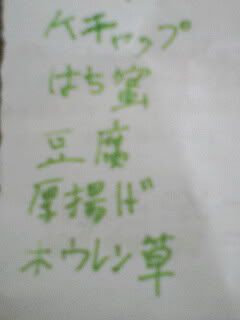 ケチャップ
はち蜜
豆腐
厚揚げ
ホウレン草